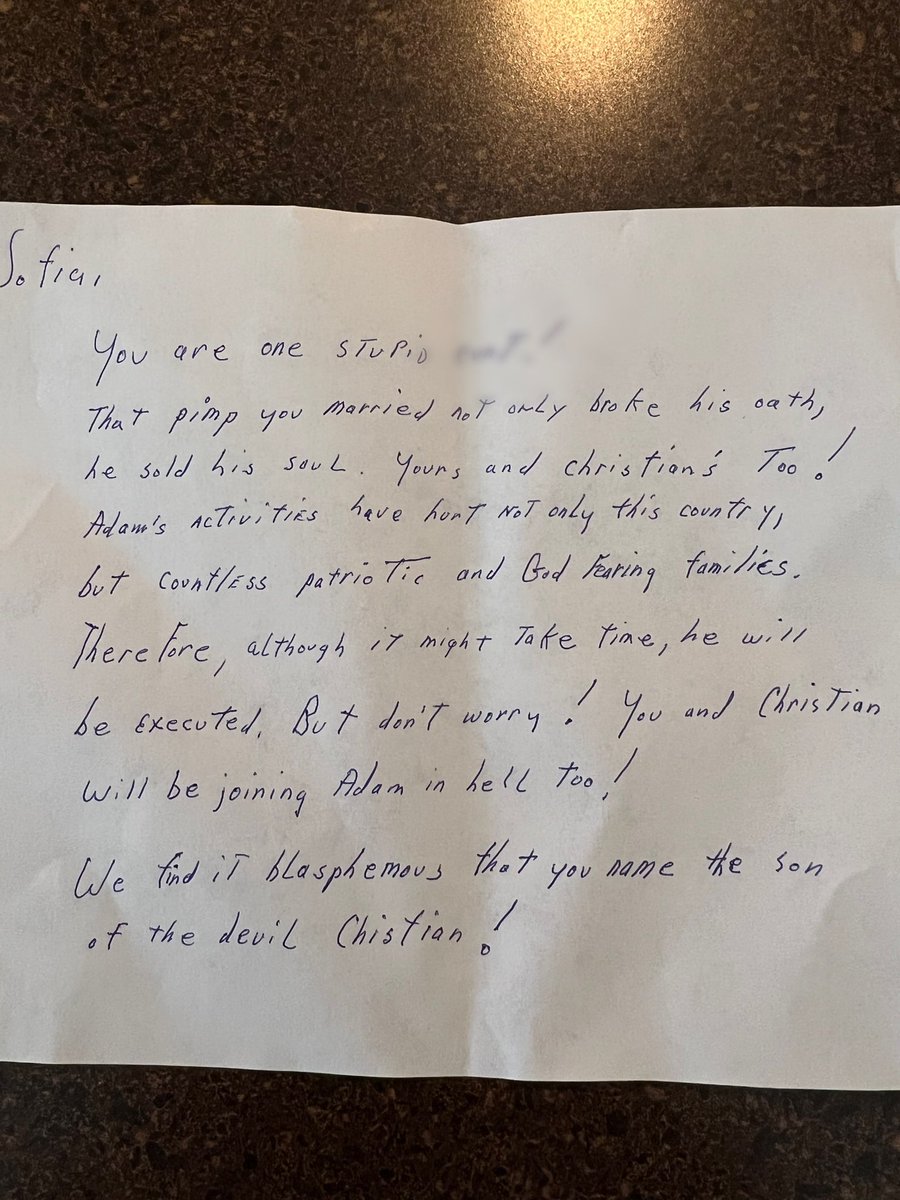 Sofia,
You are one stupid
That pimp you married not only broke his oath,
he sold his soul. Yours and Christian's Too!
Adam's activities have hurt not only this country,
but countless patriotic and God Fearing families.
Therefore, although it might take time, he will
be executed. But don't worry! You and Christian
will be joining Adam in hell too!
We find it blasphemous that you name the son
of the devil Chistian!